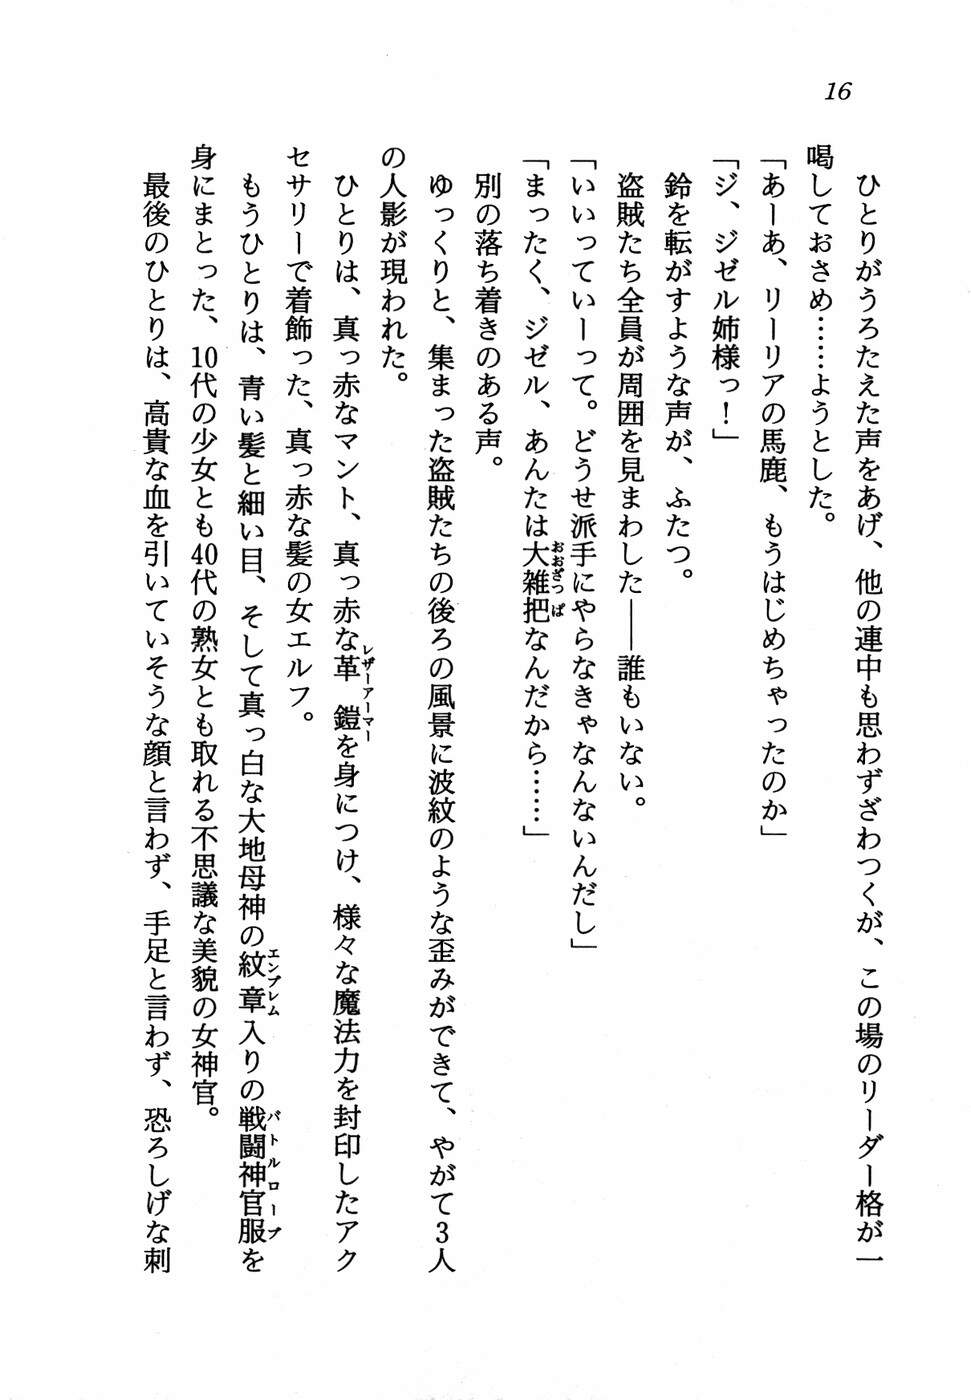 16
ひとりがうろたえた声をあげ、他の連中も思わずざわつくが、この場のリーダー格が一
喝しておさめ……ようとした。
「あーあ、リーリアの馬鹿、もうはじめちゃったのか」
「ジ、ジゼル姉様っ！」
鈴を転がすような声が、ふたつ。
盗賊たち全員が周囲を見まわした――誰もいない。
「いいっていーって。どうせ派手にやらなきゃなんないんだし」
「まったく、ジゼル、あんたは大雑把なんだから……」
おおざっぱ
別の落ち着きのある声。
ゆっくりと、集まった盗賊たちの後ろの風景に波紋のような歪みができて、やがて3人
の人影が現われた。
ひとりは、真っ赤なマント、真っ赤な革鎧を身につけ、様々な魔法力を封印したアク
レザーアーマー
セサリーで着飾った、真っ赤な髪の女エルフ。
もうひとりは、青い髪と細い目、そして真っ白な大地母神の紋章入りの戦闘神官服を
エンブレム
バトルローブ
身にまとった、10代の少女とも40代の熟女とも取れる不思議な美貌の女神官。
最後のひとりは、高貴な血を引いていそうな顔と言わず、手足と言わず、恐ろしげな刺